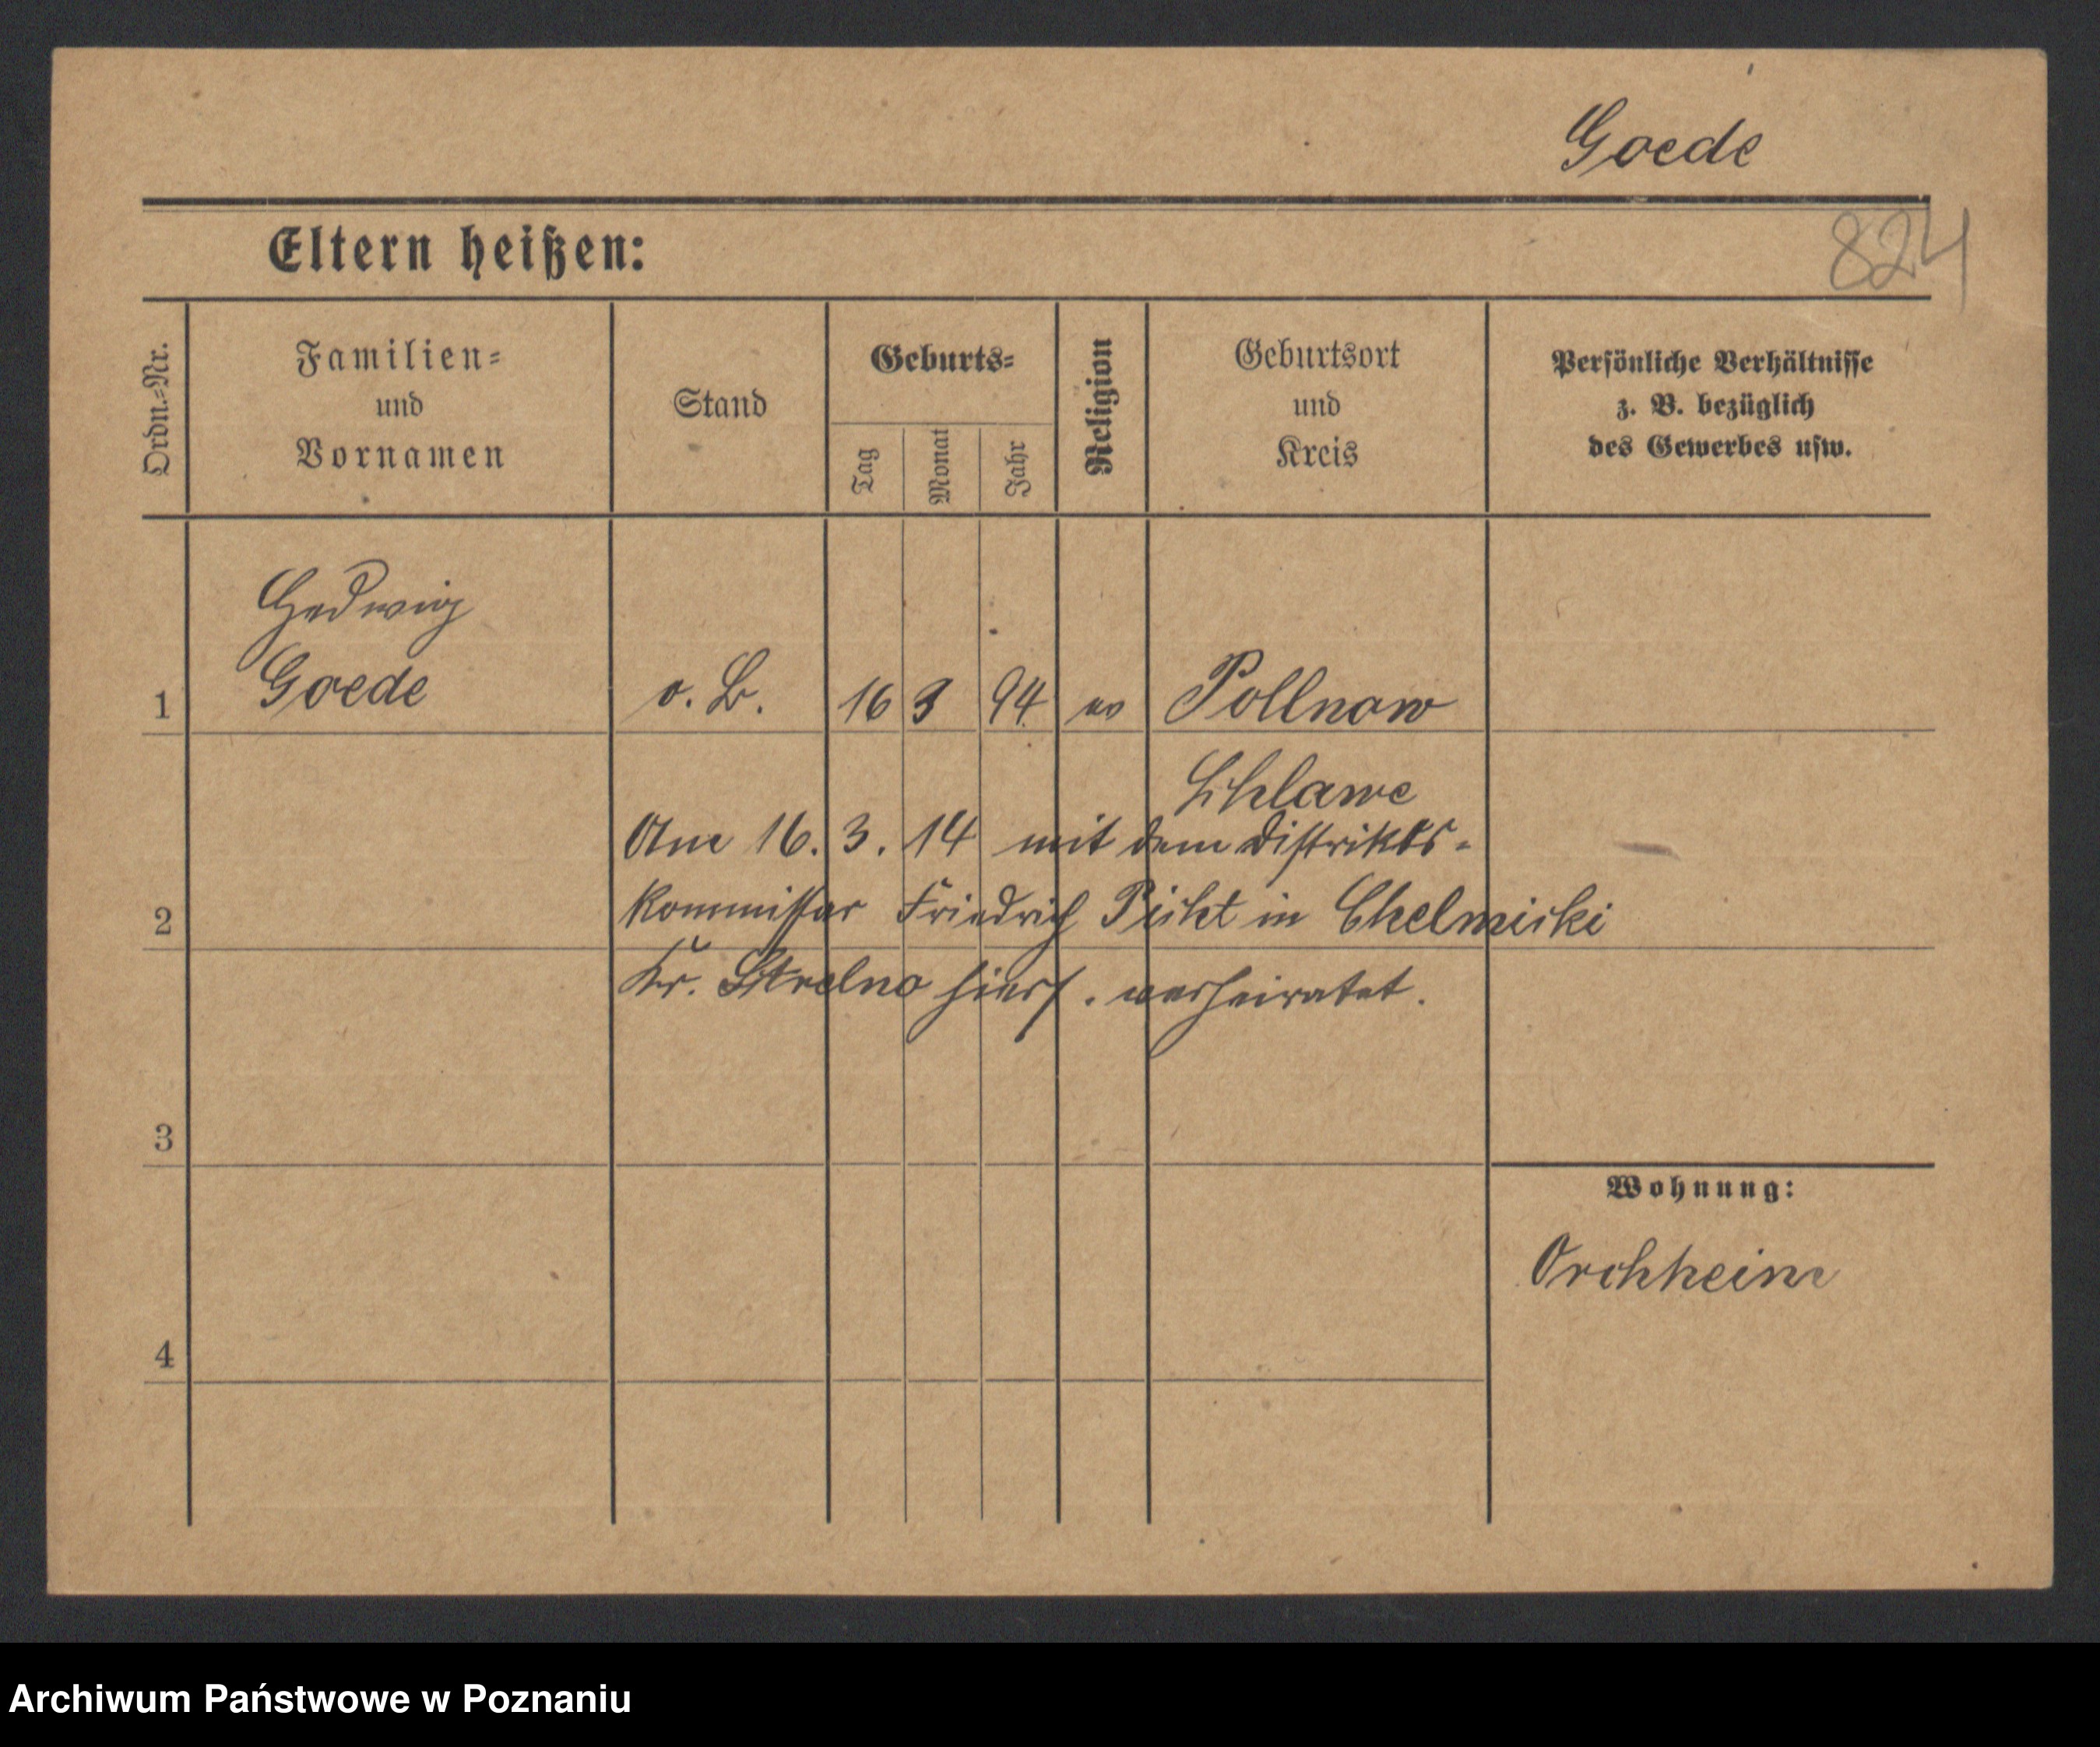 Goede
824
Eltern heißen:
Ordn.-Nr.
Familien-
und
Vornamen
Stand
Geburts-
Tag
Monat
Jahr
Religion
Geburtsort
und
Kreis
Persönliche Verhältnisse
z. B. bezüglich
des Gewerbes usw.
Hedwig
1 Goede o. B. 16 3 94 ev Pollnow
Schlawe
Am 16. 3. 14 mit dem Distrikts-
2 kommissar Friedrich Picht in Chelmiski
Kr. Strelno hiers. verheiratet.
3
Wohnung:
Orchheim
4
Archiwum Państwowe w Poznaniu